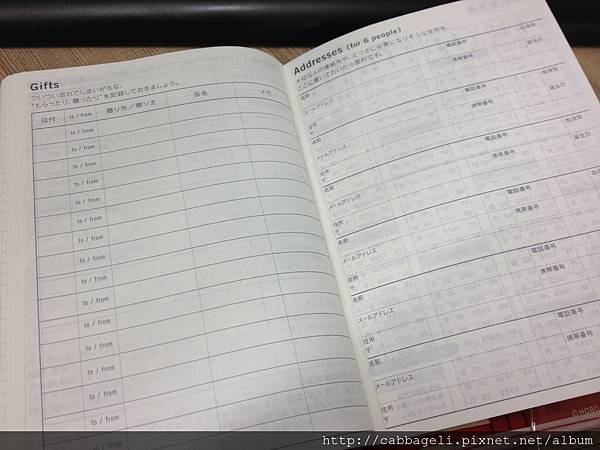 Gifts
ついつい忘れてしまいがちな、
"もらったり、贈ったり"を記録しておきましょう。
日付 to / from 贈り先／贈り主 品名 メモ
to / from
to / from
to / from
to / from
to / from
to / from
to / from
to / from
to / from
to / from
to / from
to / from
to / from
to / from
to / from
Addresses (for 6 people)
大切な人の連絡先や、とっさに必要になりそうな住所を、
ここに書いておいたら便利です。
名前 電話番号 血液型
メールアドレス 携帯番号 誕生日
住所
〒
名前 電話番号 血液型
メールアドレス 携帯番号 誕生日
住所
〒
名前 電話番号 血液型
メールアドレス 携帯番号 誕生日
住所
〒
名前 電話番号
メールアドレス 携帯番号
住所
〒
名前 電話番号 血液型
メールアドレス 携帯番号 誕生日
住所
〒
名前 電話番号 血液型
メールアドレス 携帯番号 誕生日
住所
〒
©HOBO
http://cabbageli.pixnet.net/album